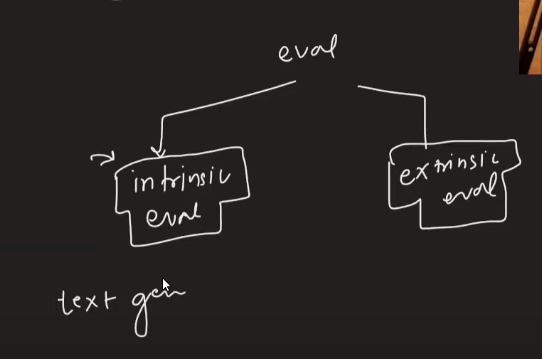 eval
intrinsic
eval
extrinsic
eval
text gen